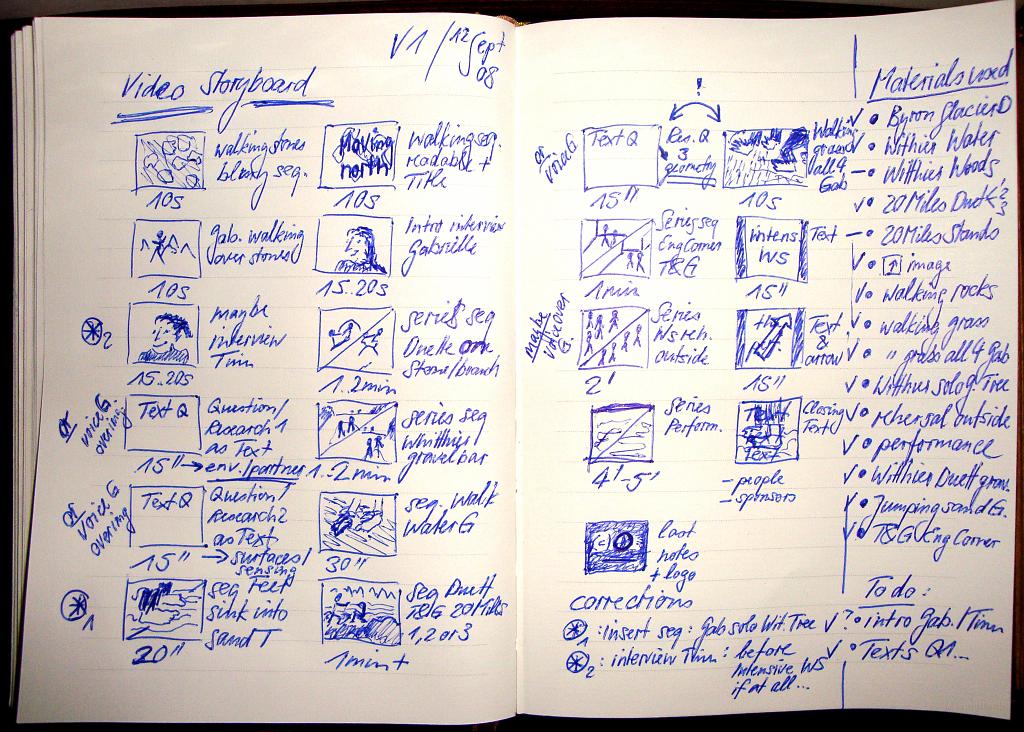 V1 / 12 Sept 08
Video Storyboard
walking stones
blurry seq.
10s
Moving
north
walking seq.
readable +
Title
10s
Gab. walking
over stones
10s
Intro interview
Gabrielle
15..20s
*2
maybe
interview
Timm
15..20s
series seq
Duette on
Stone/branch
1..2min
or
voice G
overimg.
Text Q
Question/
Research 1
as Text
15" → env./partner
series seq
Whitthier
gravelbar
1..2 min
or
Voice G
overimg
Text Q
Question/
Research 2
as Text
15" → surfaces/
sensing
seq. Walk
Water G
30"
*1
seq Feet
sink into
sand T
20"
seq Duett
T&G 20Miles
1,2 or 3
1min+
!
or
voice G
Text Q
15"
Res. Q
3
geometry
Walking
grass
all 4
Gab
10s
Series seq
Eng Corner
T&G
1min
intens
WS
Text
15"
maybe
voiceover
G.
Series
Ws reh.
outside
2'
Text
&
arrow
15"
series
Perform.
4'-5'
Text
Text
Closing
Text
- people
- sponsors
(c)
last
notes
+ logo
corrections
*1 : insert seq: Gab solo Wit Tree
*2 : interview Timm : before
Intensive WS
if at all...
Materials used
• Byron Glacier D
• Witthier Water
• Witthier Woods
• 20Miles Duett 1 2 3
• 20Miles Stands
• ↑ image
• walking rocks
• walking grass
• " grabs all 4 Gab
• Witthier solo g Tree
• rehersal outside
• performance
• Witthier Duett grav.
• Jumping sand G.
• T&G Eng Corner
To do:
? • intro Gab. / Timm
• Texts Q1...